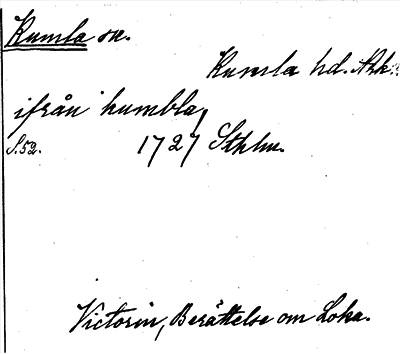 Kumla sn.
Kumla hd. Nke.
ifrån humbla,
S.52. 1727 Sthlm.
Victorin, Berättelse om Loka.